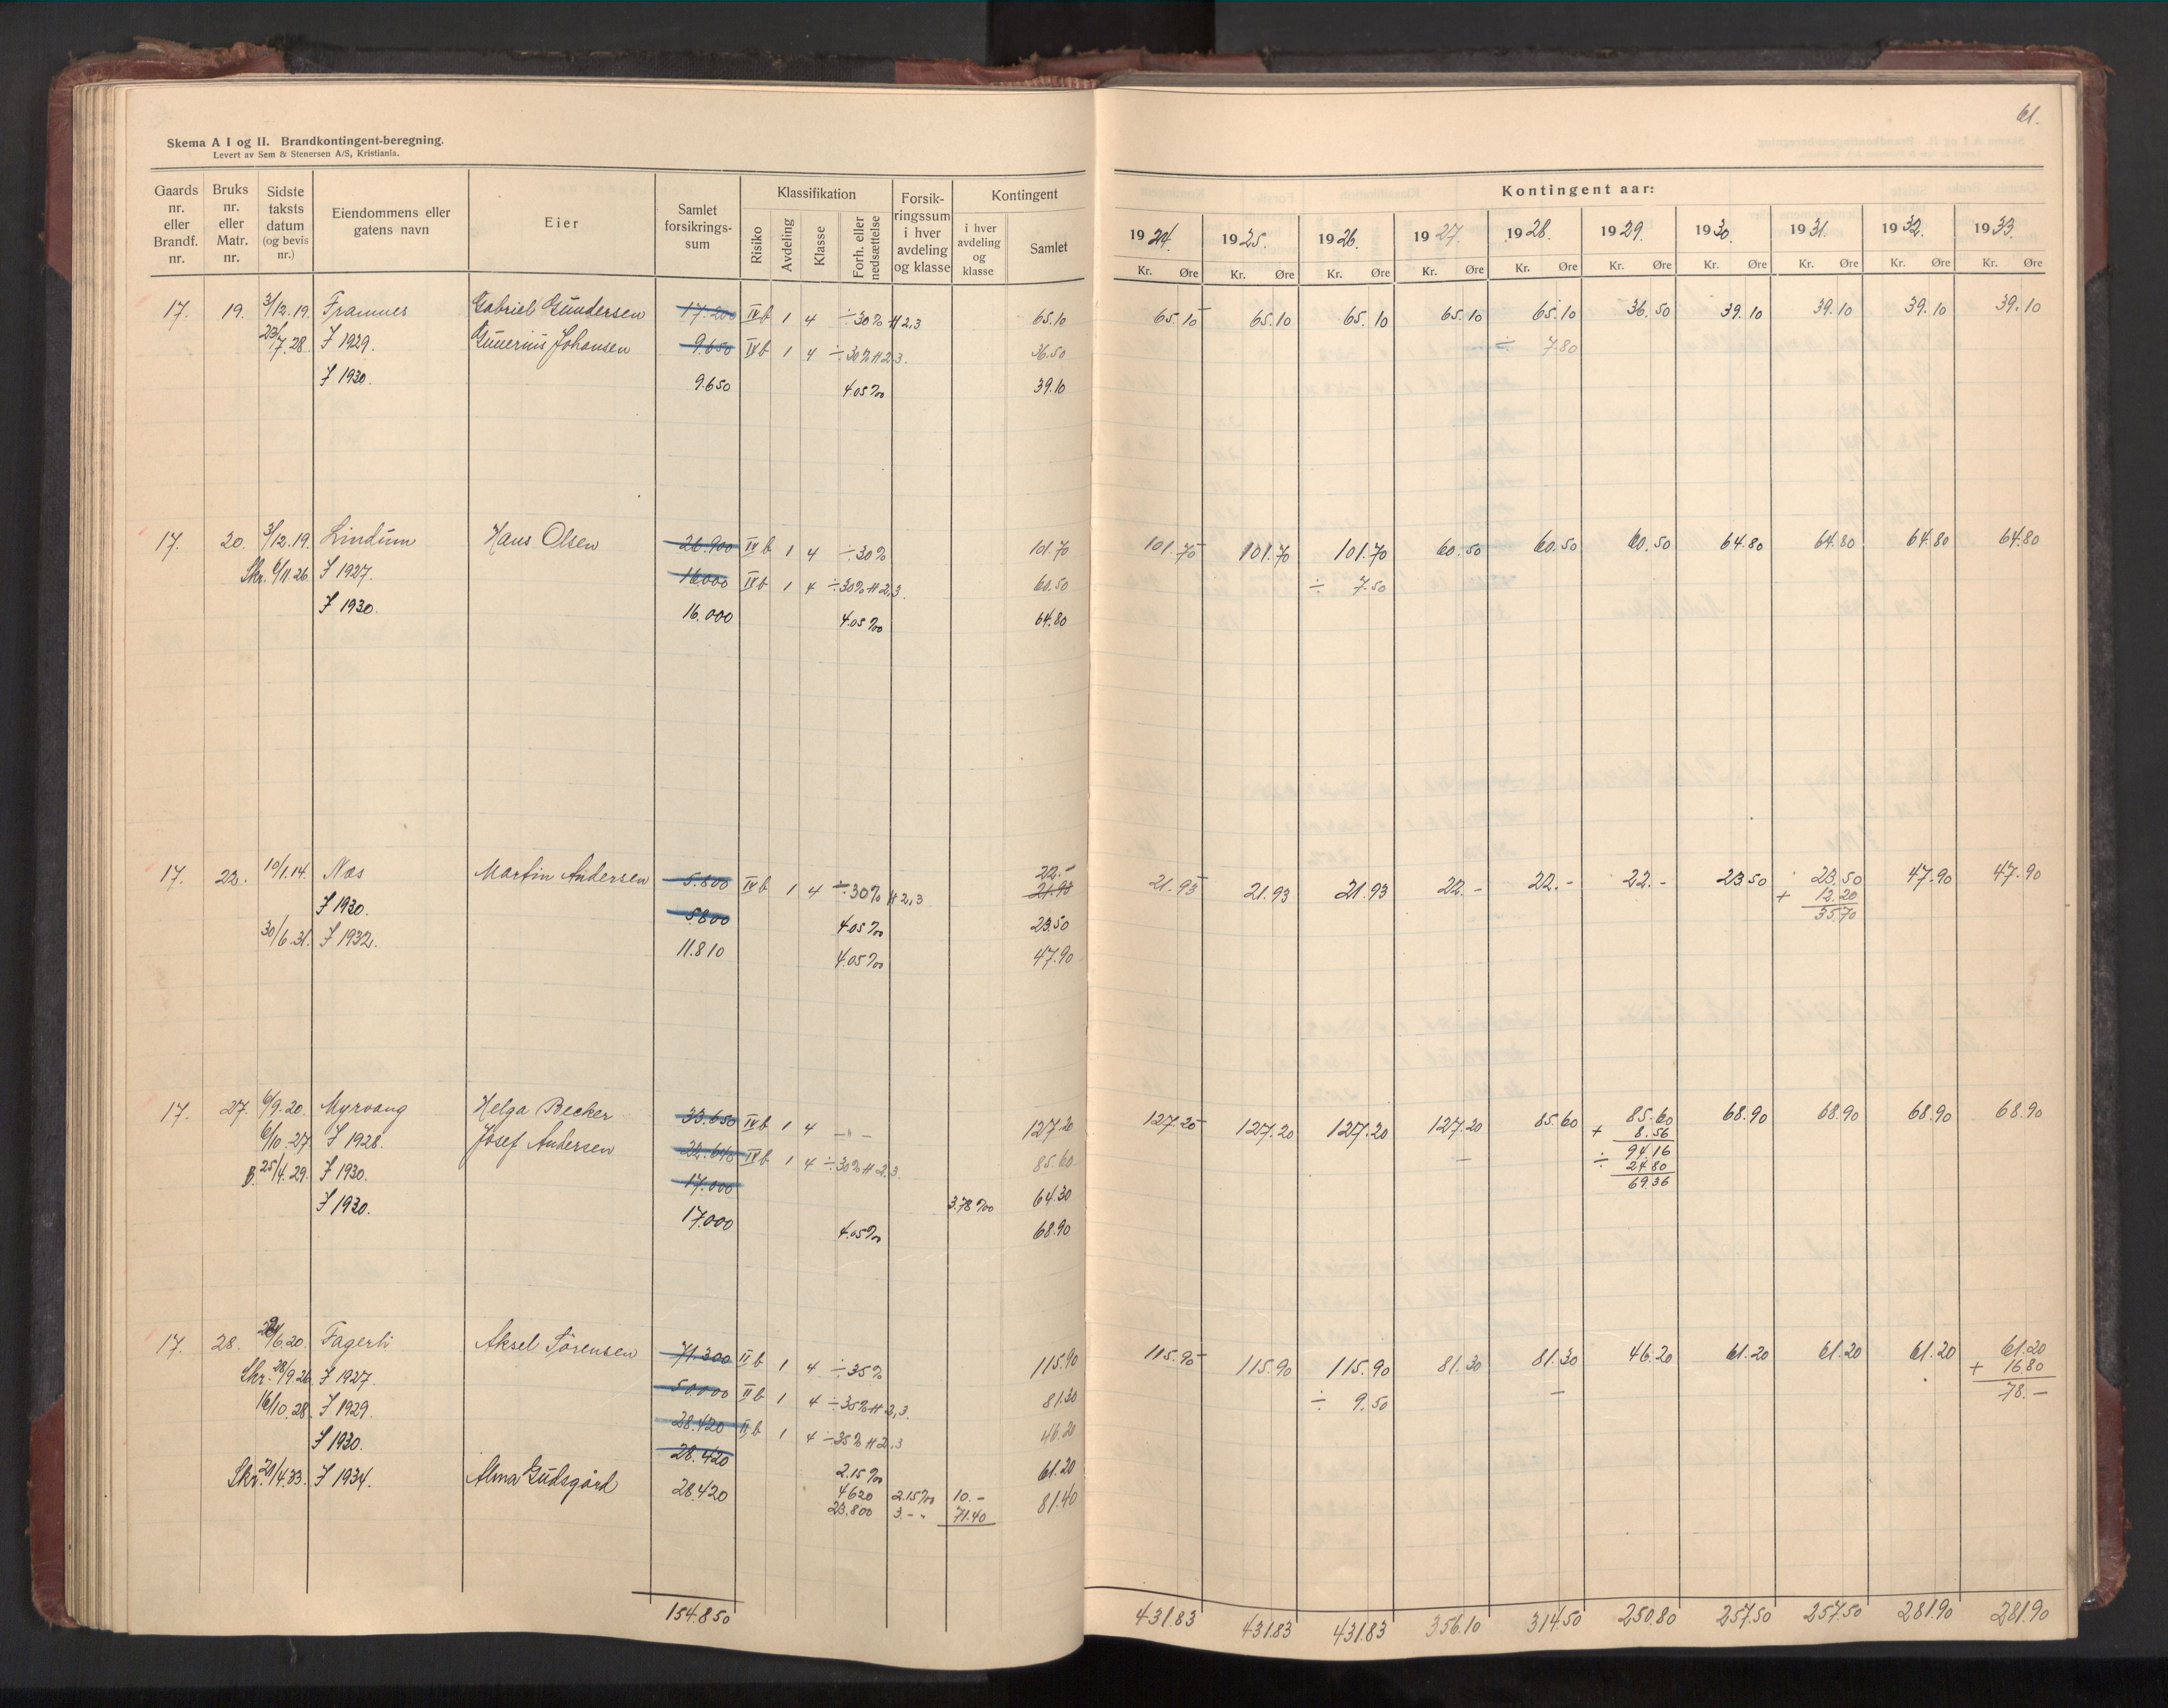 61.
Skema A I og II. Brandkontingent-beregning.
Levert av Sem & Stenersen A/S, Kristiania.
Gaards nr. eller Brandf. nr.
Bruks nr. eller Matr. nr.
Sidste taksts datum (og bevis nr.)
Eiendommens eller gatens navn
Eier
Samlet forsikrings-sum
Klassifikation
Risiko
Avdeling
Klasse
Forh. eller nedsættelse
Forsik-ringssum i hver avdeling og klasse
Kontingent
i hver avdeling og klasse
Samlet
Kontingent aar:
1924. 1925. 1926. 1927. 1928. 1929. 1930. 1931. 1932. 1933.
Kr. Øre Kr. Øre Kr. Øre Kr. Øre Kr. Øre Kr. Øre Kr. Øre Kr. Øre Kr. Øre Kr. Øre
17. 19. 3/12.19. Framnes Gabriel Gundersen 17.200 IVb 1 4 ÷30% H2,3 65.10 65.10 65.10 65.10 65.10 65.10 36.50 39.10 39.10 39.10 39.10
23/7.28. F 1929. Gunerius Johansen 9.650 IVb 1 4 ÷30% H2,3. 36.50 ÷ 7.80
F 1930. 9.650 4.05‰ 39.10
17. 20. 3/12.19. Lindum Hans Olsen 26.900 IVb 1 4 ÷30% 101.70 101.70 101.70 101.70 60.50 60.50 60.50 64.80 64.80 64.80 64.80
Skr. 6/11.26. F 1927. 16000 IVb 1 4 ÷30% H2,3. 60.50 ÷ 7.50
F 1930. 16.000 4.05‰ 64.80
17. 22. 10/1.14. Næs Martin Andersen 5.800 IVb 1 4 ÷30% H2,3 22.- 21.93 21.93 21.93 21.93 22.- 22.- 22.- 23.50 23.50 47.90 47.90
F 1930. 5800 4.05‰ 23.50 + 12.20
30/6.31. F 1932. 11.810 4.05‰ 47.90 35.70
17. 27. 6/9.20. Myrvang Helga Becker 33.650 IVb 1 4 - - 127.20 127.20 127.20 127.20 127.20 85.60 85.60 68.90 68.90 68.90 68.90
6/10.27 F 1928. Josef Andersen 22.640 IVb 1 4 ÷30% H2,3. 85.60 - + 8.56
25/4.29. F 1930. 17.000 3.78‰ 64.30 94.16
÷ 24.80
F 1930. 17.000 4.05‰ 68.90 69.36
17. 28. /6.20. Fagerli Aksel Sørensen 71.300 IIb 1 4 ÷35% 115.90 115.90 115.90 115.90 81.30 81.30 46.20 61.20 61.20 61.20 61.20
Skr. 28/9.26. F 1927. 50000 IIb 1 4 ÷35% H2,3. 81.30 ÷ 9.50 - + 16.80
16/10.28. F 1929. 28.420 IIb 1 4 ÷35% H2,3 46.20 78.-
F 1930. 28.420 2.15‰ 61.20
Skr. 21/4.33. F 1934. Alma Gudsgård 28.420 4620 2.15‰ 10.- 81.40
23.800 3.-" 71.40
154.850 431.83 431.83 431.83 356.10 314.50 250.80 257.50 257.50 281.90 281.90